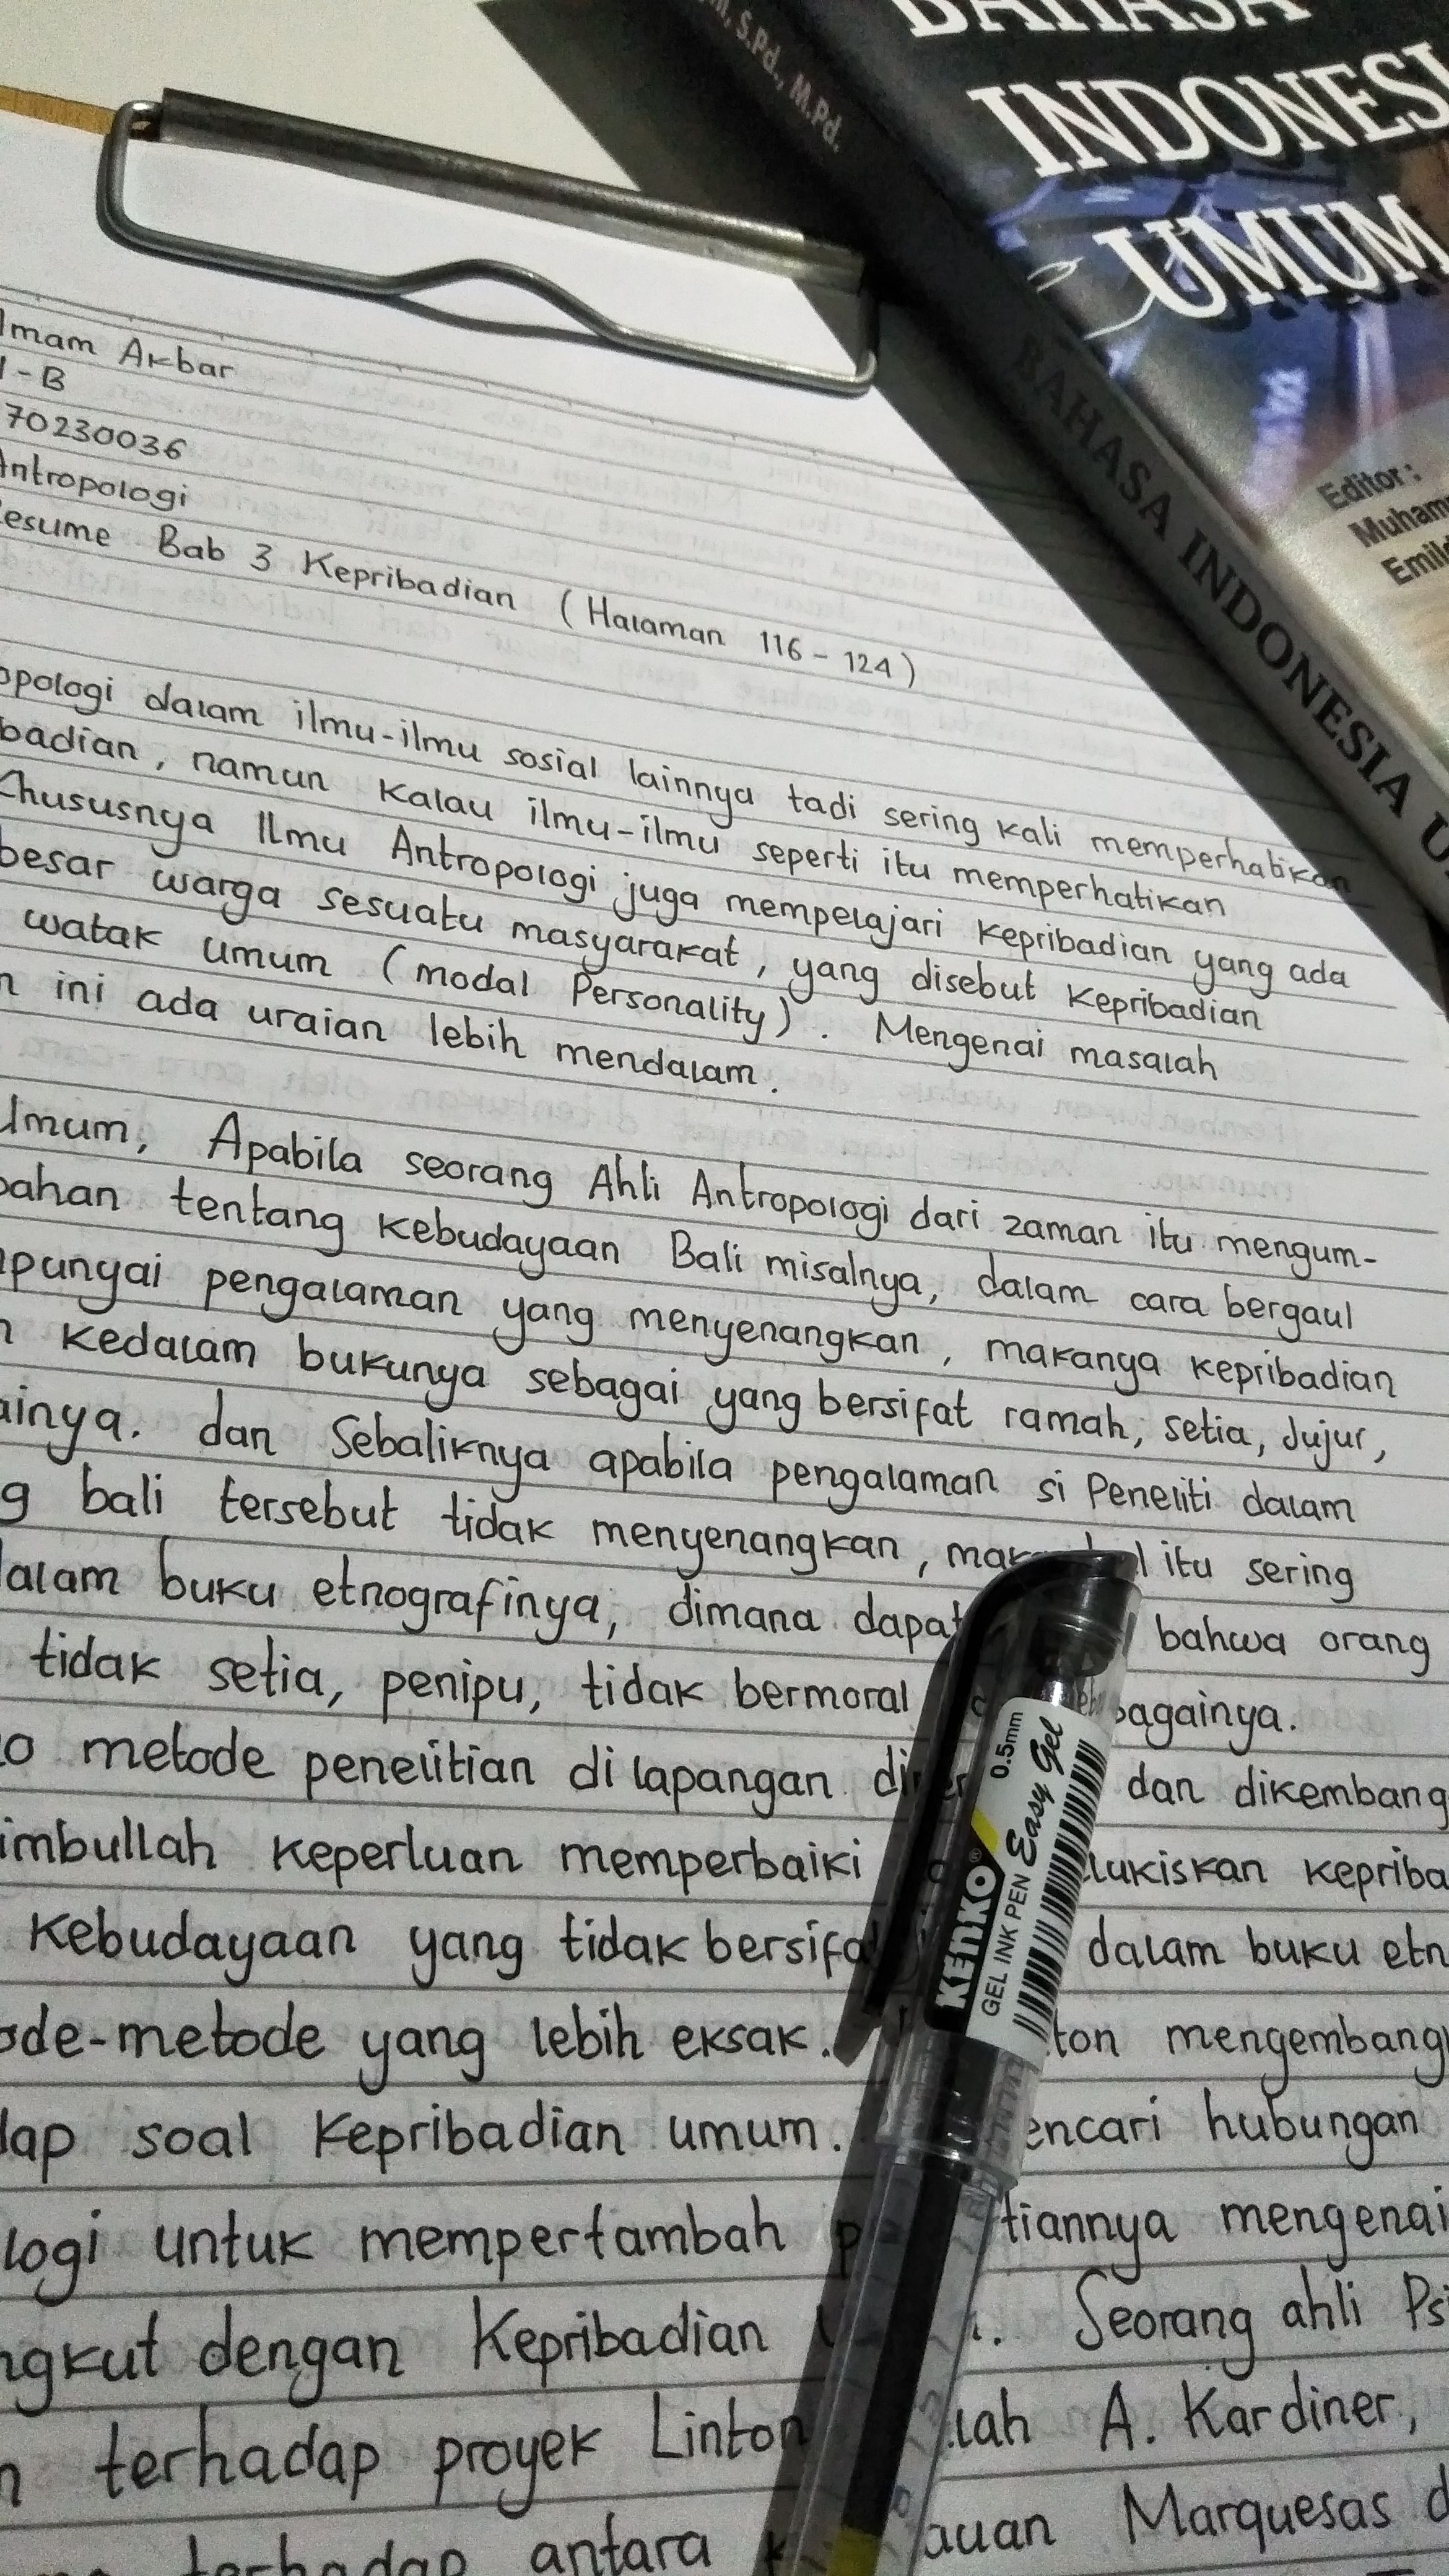 Imam Akbar
1-B
70230036
Antropologi
Resume Bab 3 Kepribadian (Halaman 116 - 124)
opologi dalam ilmu-ilmu sosial lainnya tadi sering kali memperhatikan
badian, namun kalau ilmu-ilmu seperti itu memperhatikan
Khususnya Ilmu Antropologi juga mempelajari kepribadian yang ada
besar warga sesuatu masyarakat, yang disebut kepribadian
watak umum (modal Personality). Mengenai masalah
n ini ada uraian lebih mendalam.
Umum, Apabila seorang Ahli Antropologi dari zaman itu mengum-
bahan tentang kebudayaan Bali misalnya, dalam cara bergaul
punyai pengalaman yang menyenangkan, makanya kepribadian
n kedalam bukunya sebagai yang bersifat ramah, setia, Jujur,
ainya. dan Sebaliknya apabila pengalaman si Peneliti dalam
g bali tersebut tidak menyenangkan, itu sering
dalam buku etnografinya, dimana dapat bahwa orang
tidak setia, penipu, tidak bermoral bagainya.
o metode penelitian di lapangan dan dikembang
imbullah keperluan memperbaiki lukiskan kepriba
kebudayaan yang tidak bersifa dalam buku etn
ode-metode yang lebih eksak. ton mengembang
dap soal kepribadian umum. encari hubungan
logi untuk mempertambah p tiannya mengenai
ngkut dengan Kepribadian Seorang ahli Psi
n terhadap proyek Linton lah A. Kardiner,
terhadap antara auan Marquesas d
M. S.Pd., M.Pd.
BAHASA
INDONESI
UMUM
BAHASA INDONESIA U
Editor:
Muham
Emild
0.5mm
KENKO®
GEL INK PEN Easy Gel